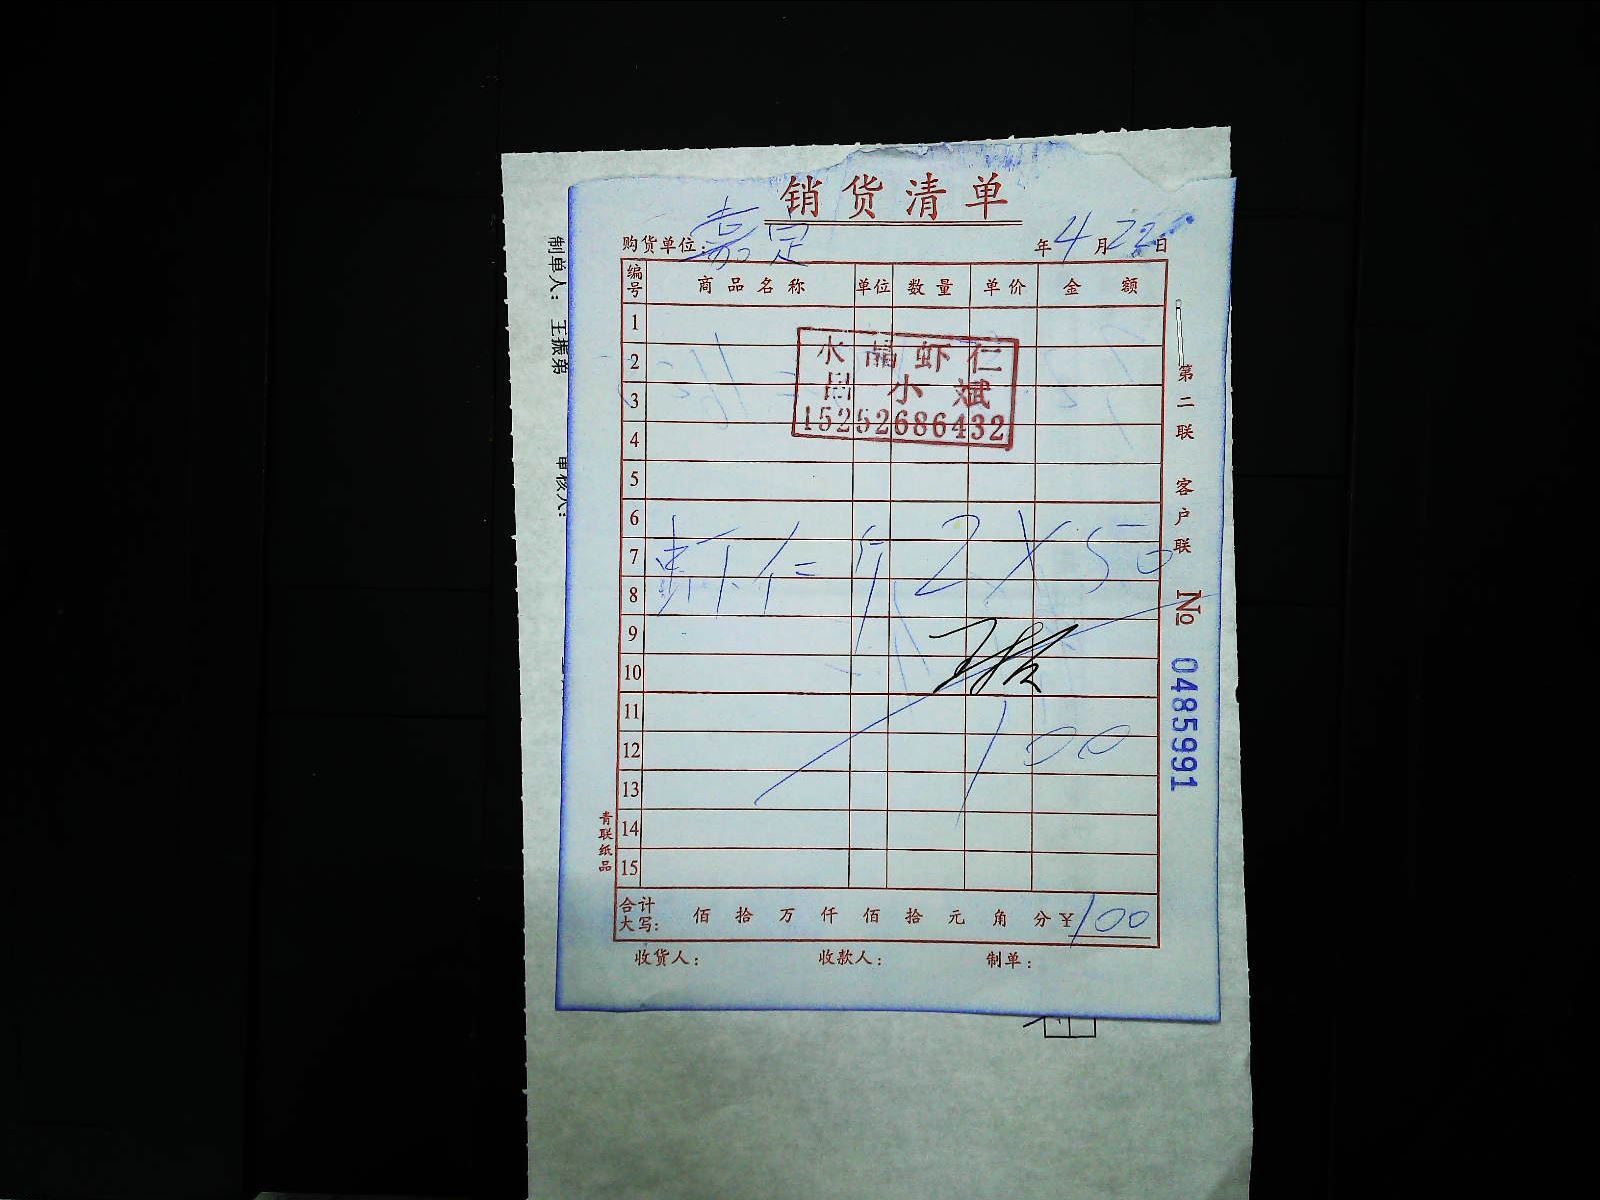 销货清单
购货单位：嘉定 年4月22日
编号 商品名称 单位 数量 单价 金额
1
2
3
4
5
6
7
8
9
10
11
12
13
14
15
水晶虾仁
小斌
15252686432
虾仁 斤 2 X 50
100
合计大写： 佰 拾 万 仟 佰 拾 元 角 分 ¥100
收货人： 收款人： 制单：
第二联 客户联
No 0485991
青联纸品
制单人： 王振弟
审核人：